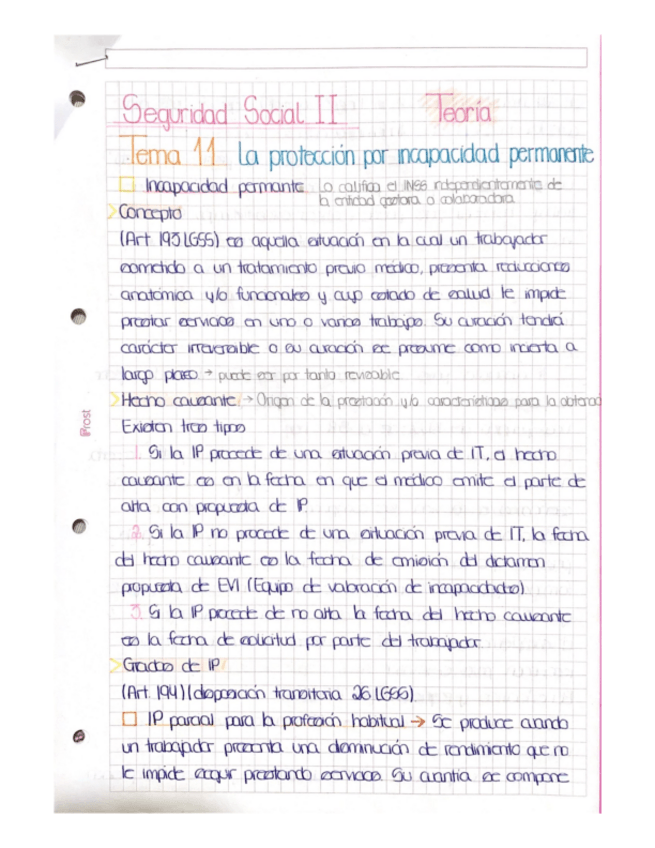 Seguridad Social II Teoría
Tema 11 La protección por incapacidad permanente
Incapacidad permante Lo califica el INSS independientemente de
la entidad gestora o colaboradora
Concepto
(Art 193 LGSS) es aquella situación en la cual un trabajador
sometido a un tratamiento previo médico, presenta reducciones
anatómica y/o funcionales y cuyo estado de salud le impide
prestar servicios en uno o varios trabajos. Su curación tendrá
carácter irreversible o su curación se presume como incierta a
largo plazo → puede ser por tanto revisable
Hecho causante → Origen de la prestación y/o características para la
Existen tres tipos
1. Si la IP procede de una situación previa de IT, el hecho
causante es en la fecha en que el médico emite el parte de
alta con propuesta de IP
2. Si la IP no procede de una situación previa de IT, la fecha
del hecho causante es la fecha de emisión del dictamen
propuesta de EVI (Equipo de valoración de incapacidades)
3. Si la IP procede de no alta la fecha del hecho causante
es la fecha de solicitud por parte del trabajador
Grados de IP
(Art. 194) (disposición transitoria 26 LGSS)
IP parcial para la profesión habitual → Se produce cuando
un trabajador presenta una disminución de rendimiento que no
le impide seguir prestando servicios. Su cuantía se compone
Prost